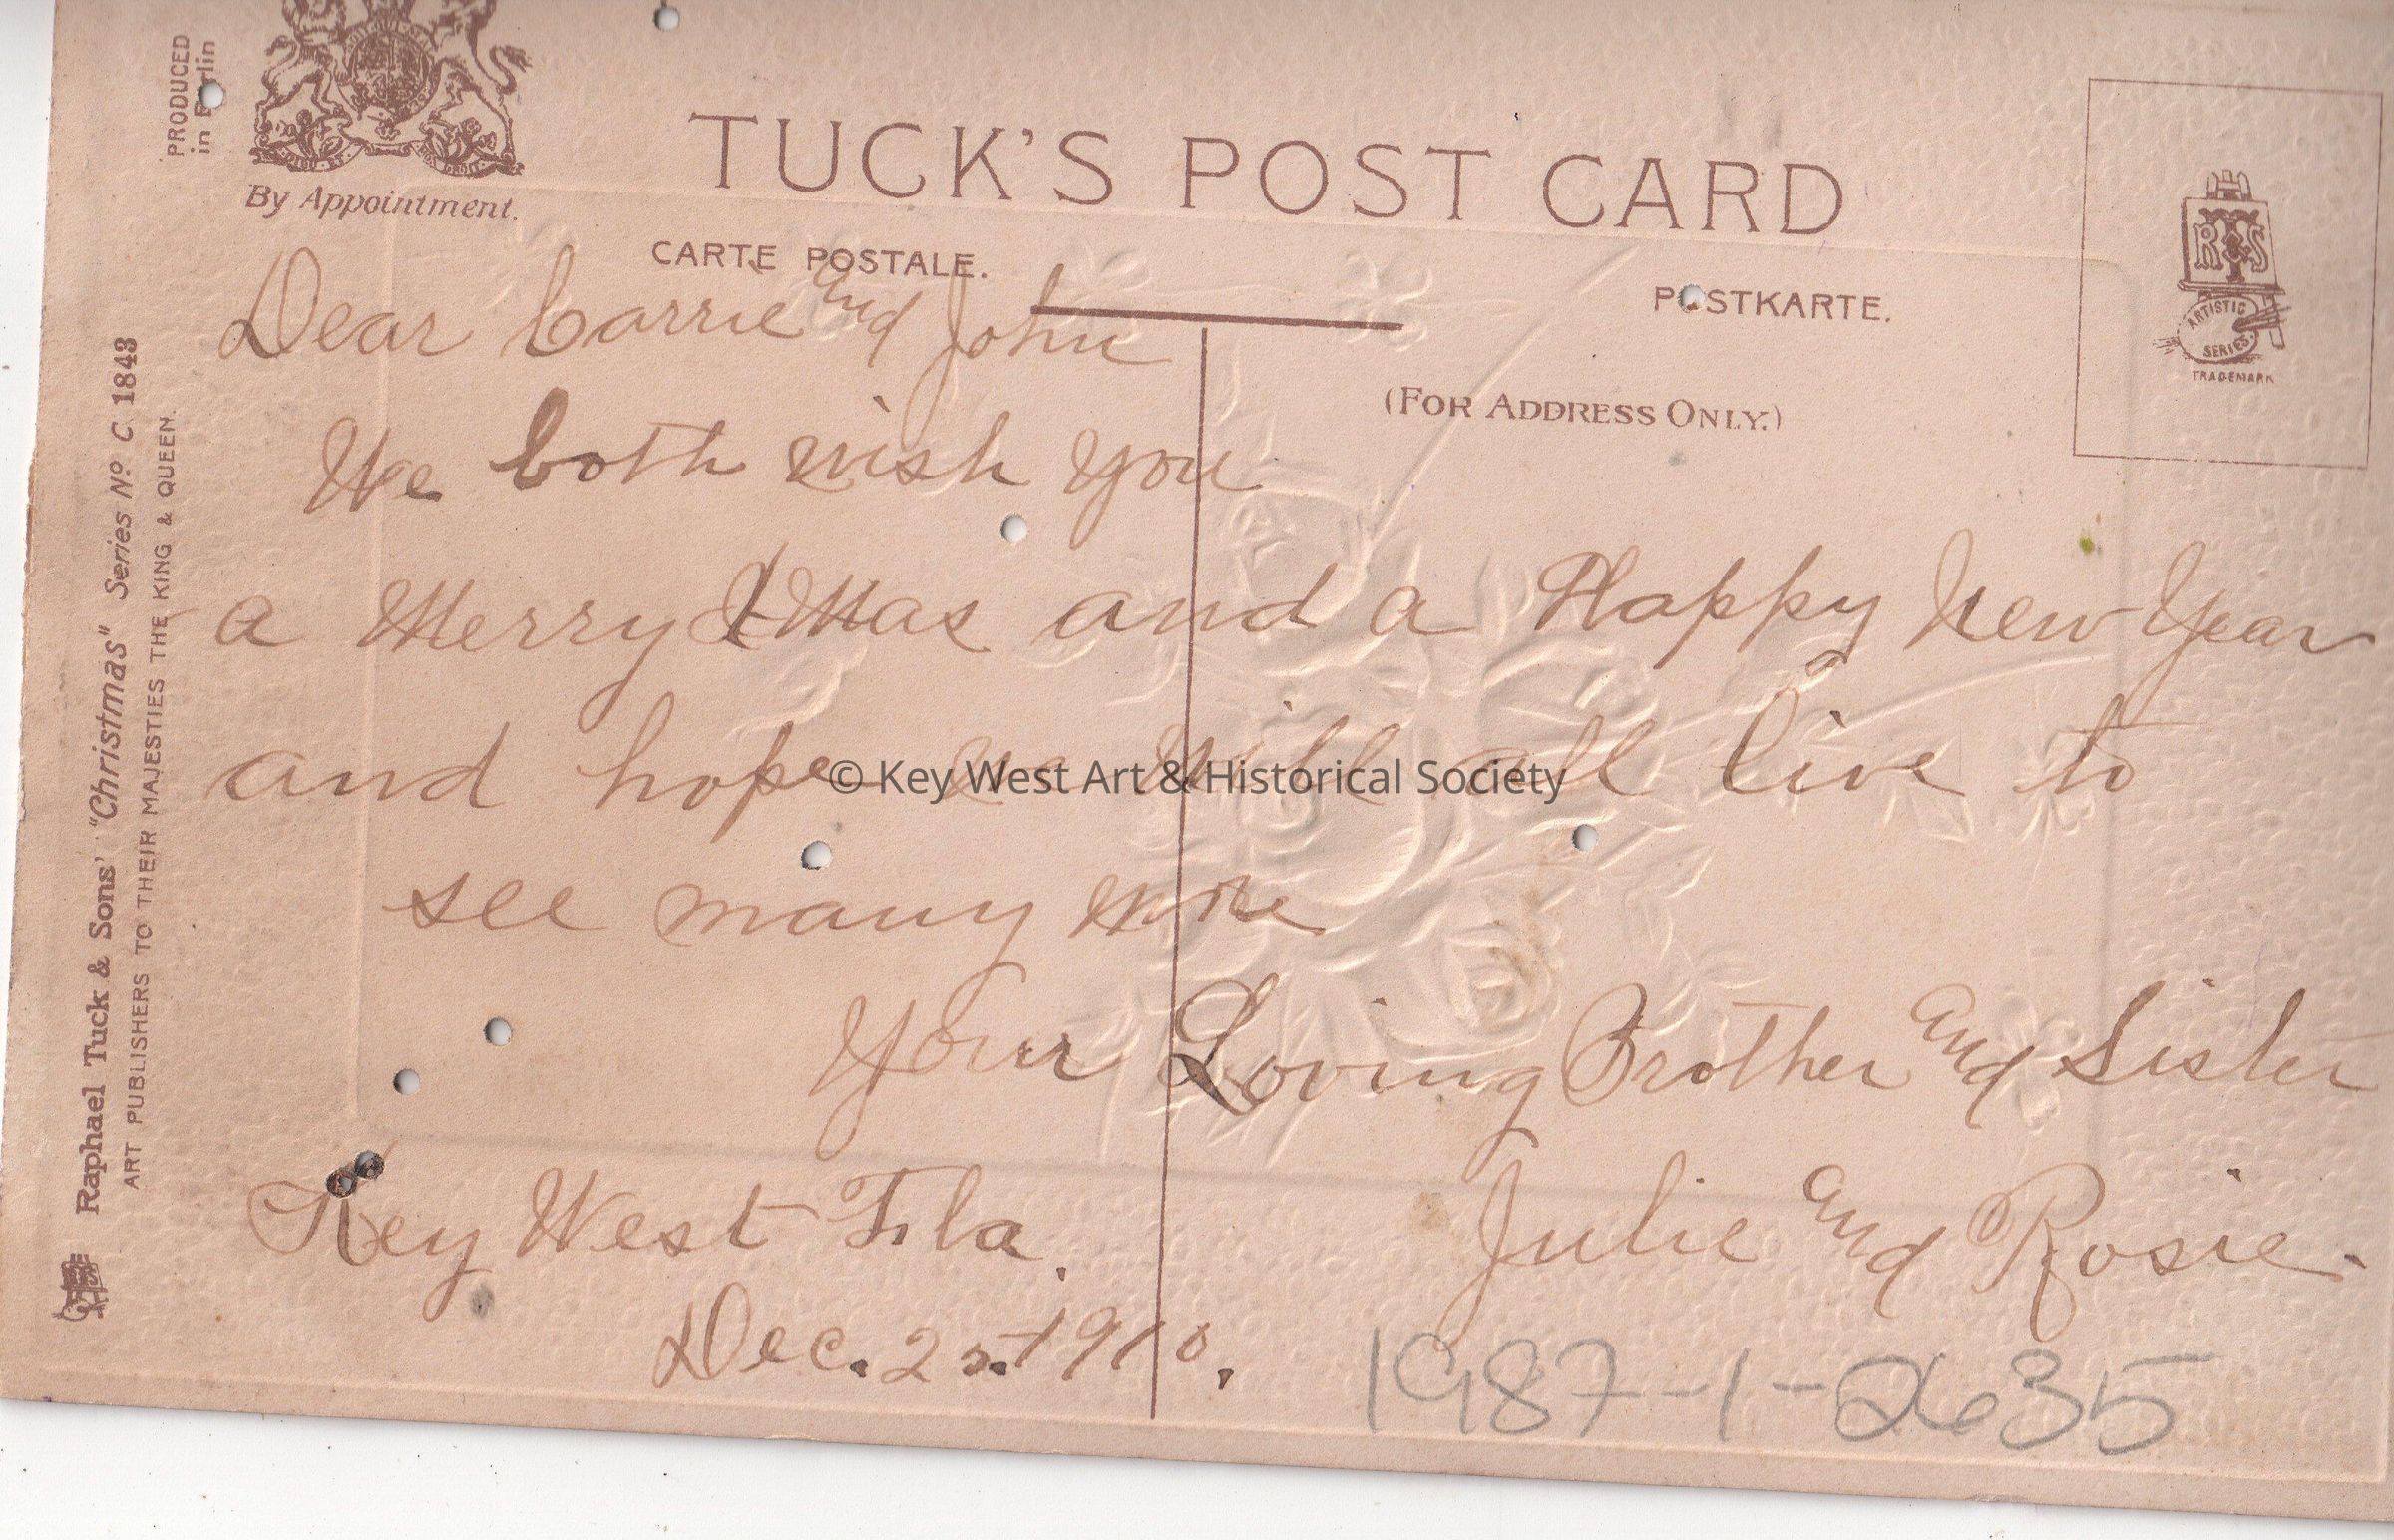 PRODUCED
in Berlin
By Appointment.
TUCK'S POST CARD
CARTE POSTALE.
POSTKARTE.
(FOR ADDRESS ONLY.)
R T & S
ARTISTIC
SERIES
TRADEMARK
Raphael Tuck & Sons' "Christmas" Series No C. 1843
ART PUBLISHERS TO THEIR MAJESTIES THE KING & QUEEN.
Dear Carrie and John
We both wish you
a Merry XMas and a Happy New Year
and hope we will all live to
see many more
Your Loving Brother and Sister
Julie and Rosie.
Key West Fla.
Dec. 25. 1910.
1987-1-2635
© Key West Art & Historical Society